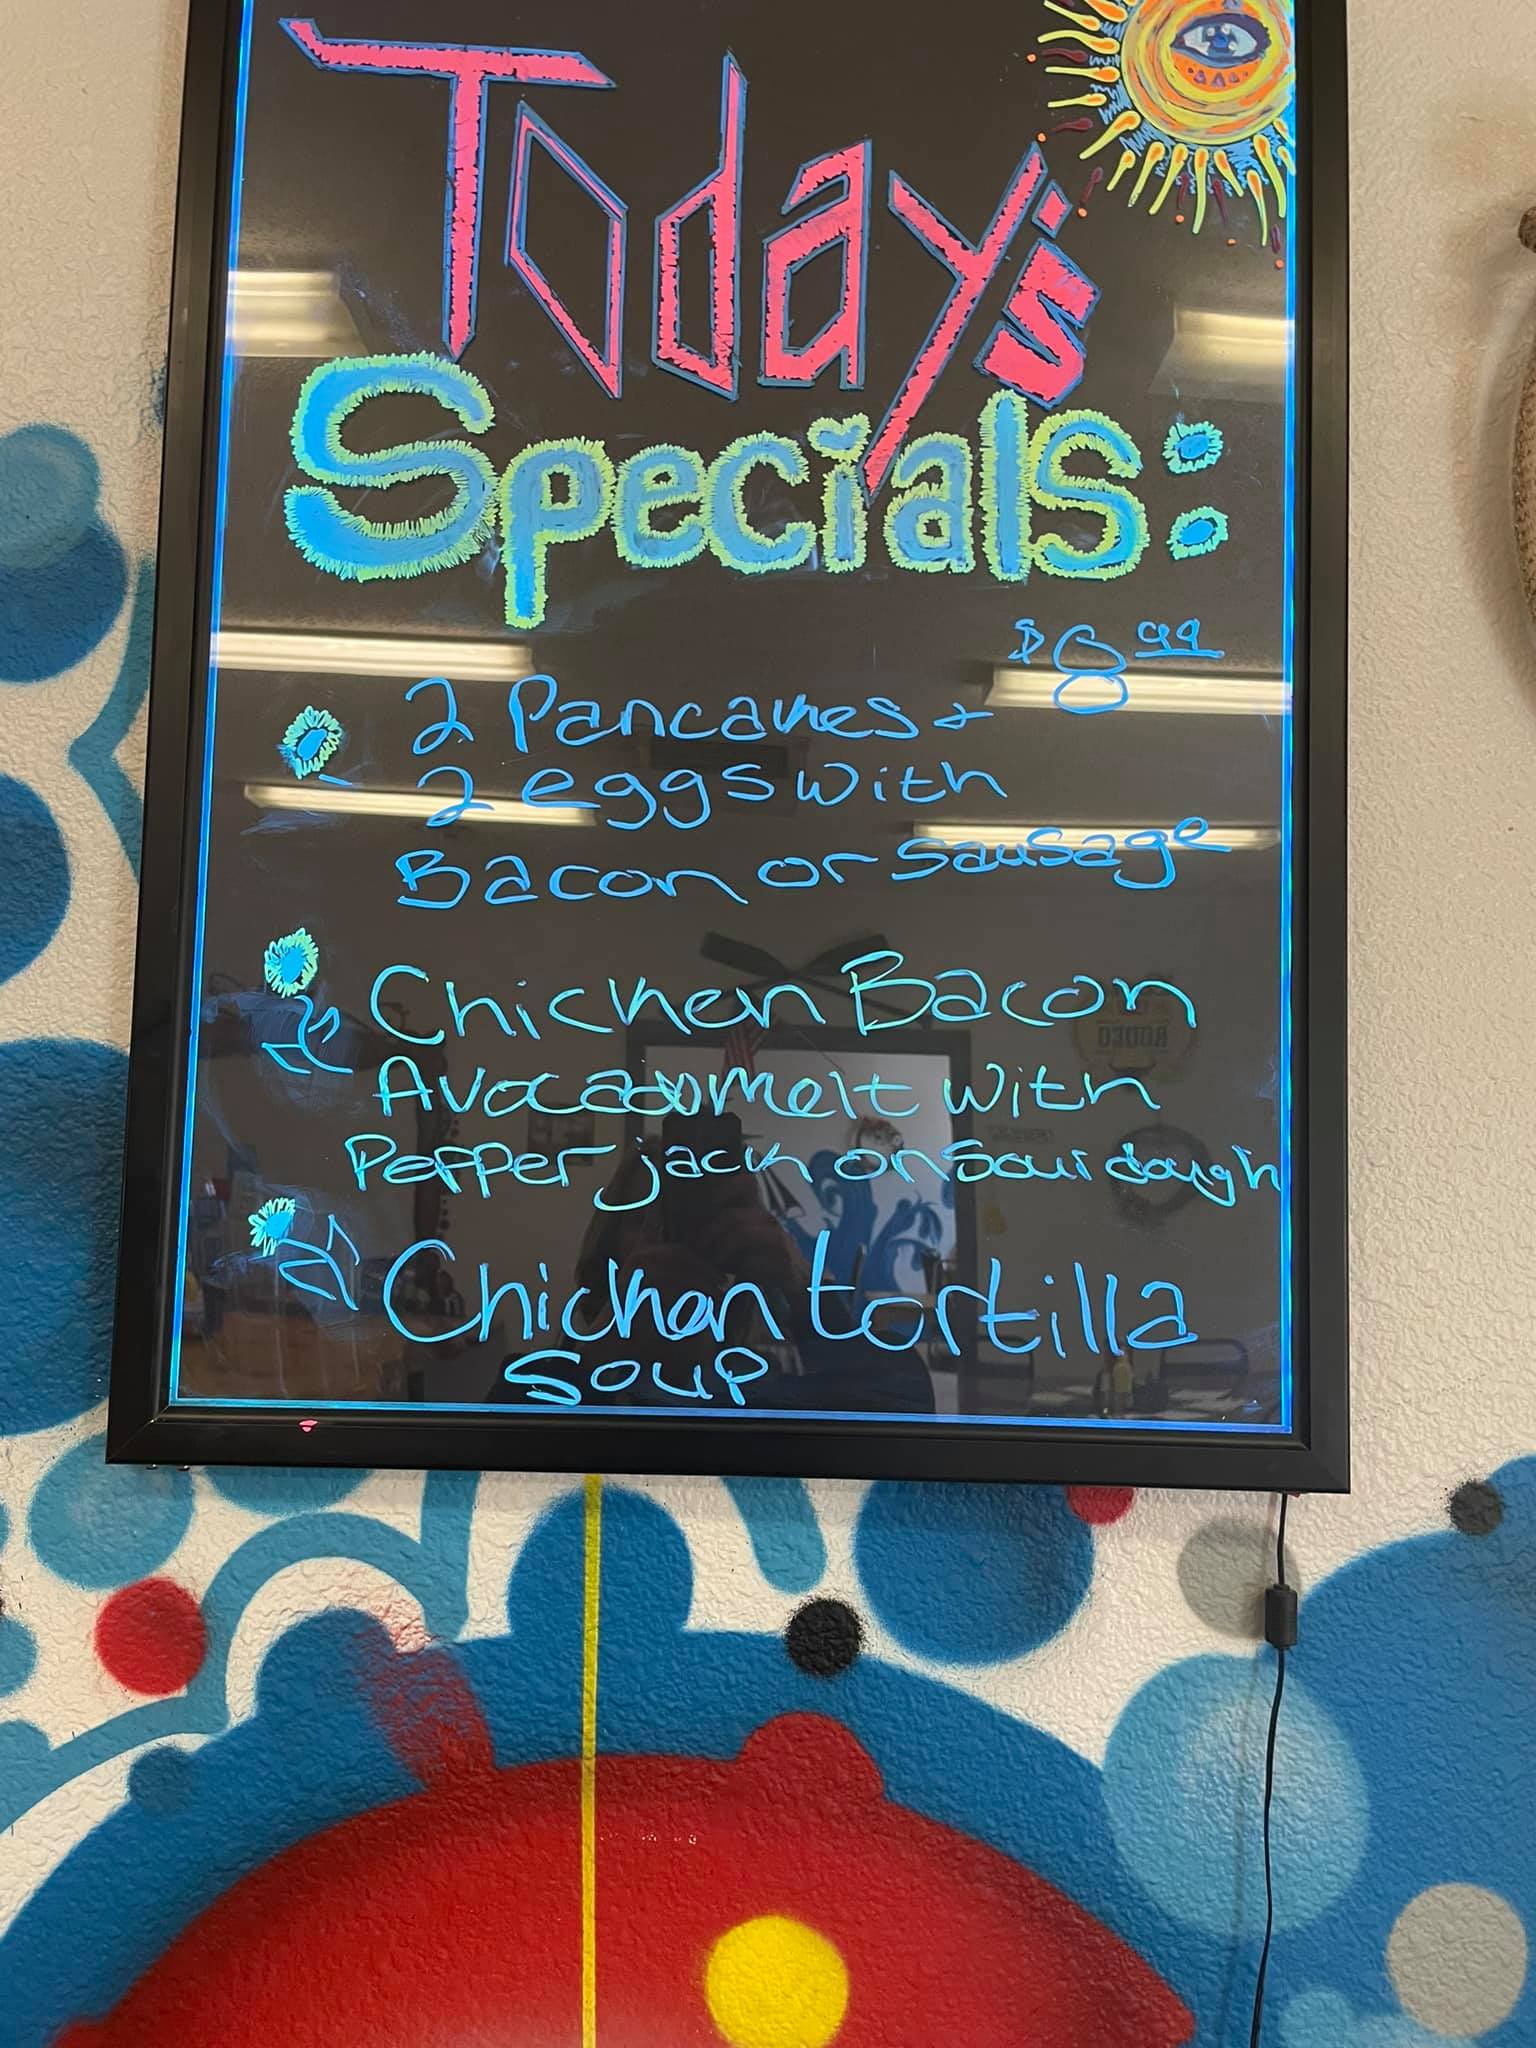 Today's
Specials:
$8.99
2 Pancakes +
2 eggs with
Bacon or sausage
Chicken Bacon
Avocado melt with
Pepper jack on sourdough
Chicken tortilla
soup